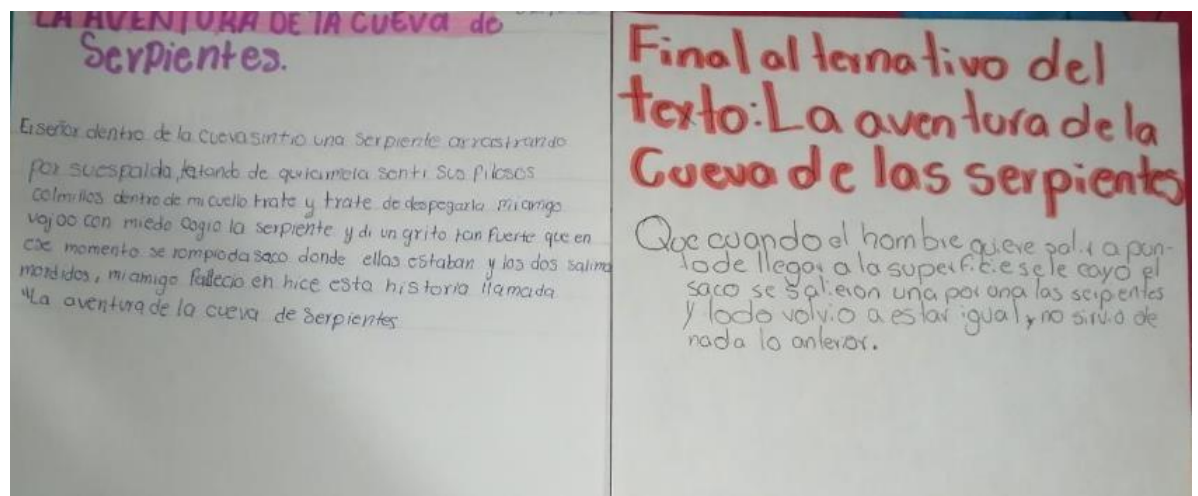 LA AVENTURA DE LA CUEVA de
Serpientes.
El señor dentro de la cueva sintio una serpiente arrastrando
por su espalda, tatando de quicarmela senti sus filosos
colmillos dentro de mi cuello trate y trate de despegarla mi amigo
vajoo con miedo cogio la serpiente y di un grito tan fuerte que en
ese momento se rompio da saco donde ellas estaban y los dos salimo
mordidos, mi amigo fallecio en hice esta historia llamada
"La aventura de la cueva de Serpientes
Final alternativo del
texto: La aventura de la
Cueva de las serpientes
Que cuando el hombre quiere salir a pun-
to de llegar a la superficie se le cayó el
saco se salieron una por una las serpientes
y todo volvio a estar igual, y no sirvio de
nada lo anterior.